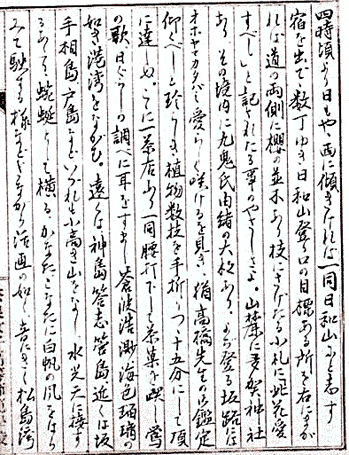 四時頃より日もやゝ西に傾きたれば一同日和山にと志す
宿を出で数丁ゆき日和山登り口の目標ある所を右にまが
れば道の両側に櫻の並木あり枝にさげたる小札に「此花愛
すべし」と記されたる事のやさしさよ。山麓に多賀神社
あり その境内に九鬼氏由緒の大松あり。 登る坂路に
オホヤマカタバミ愛らしく咲けるを見き、猶高橋先生の御鑑定
仰ぐべしと珍らしき植物数技を手折りつつ十五分にして頂
に達しぬ。こゝに一茶店あり一同腰打下して茶菓を喫し鶯
の歌ひぐらしの調べに耳をすまし 蒼波浩渺海色瑠璃の
如き港湾をながむ。遠くは神島答志菅島近くは坂
手相島戸島などいづれも小高き山をなし 水光天に接す
るあたり 蜿蜒として横はる。かなたこなたに白帆の風をはら
みて馳する様などさながら活画の如く音にきく松島湾